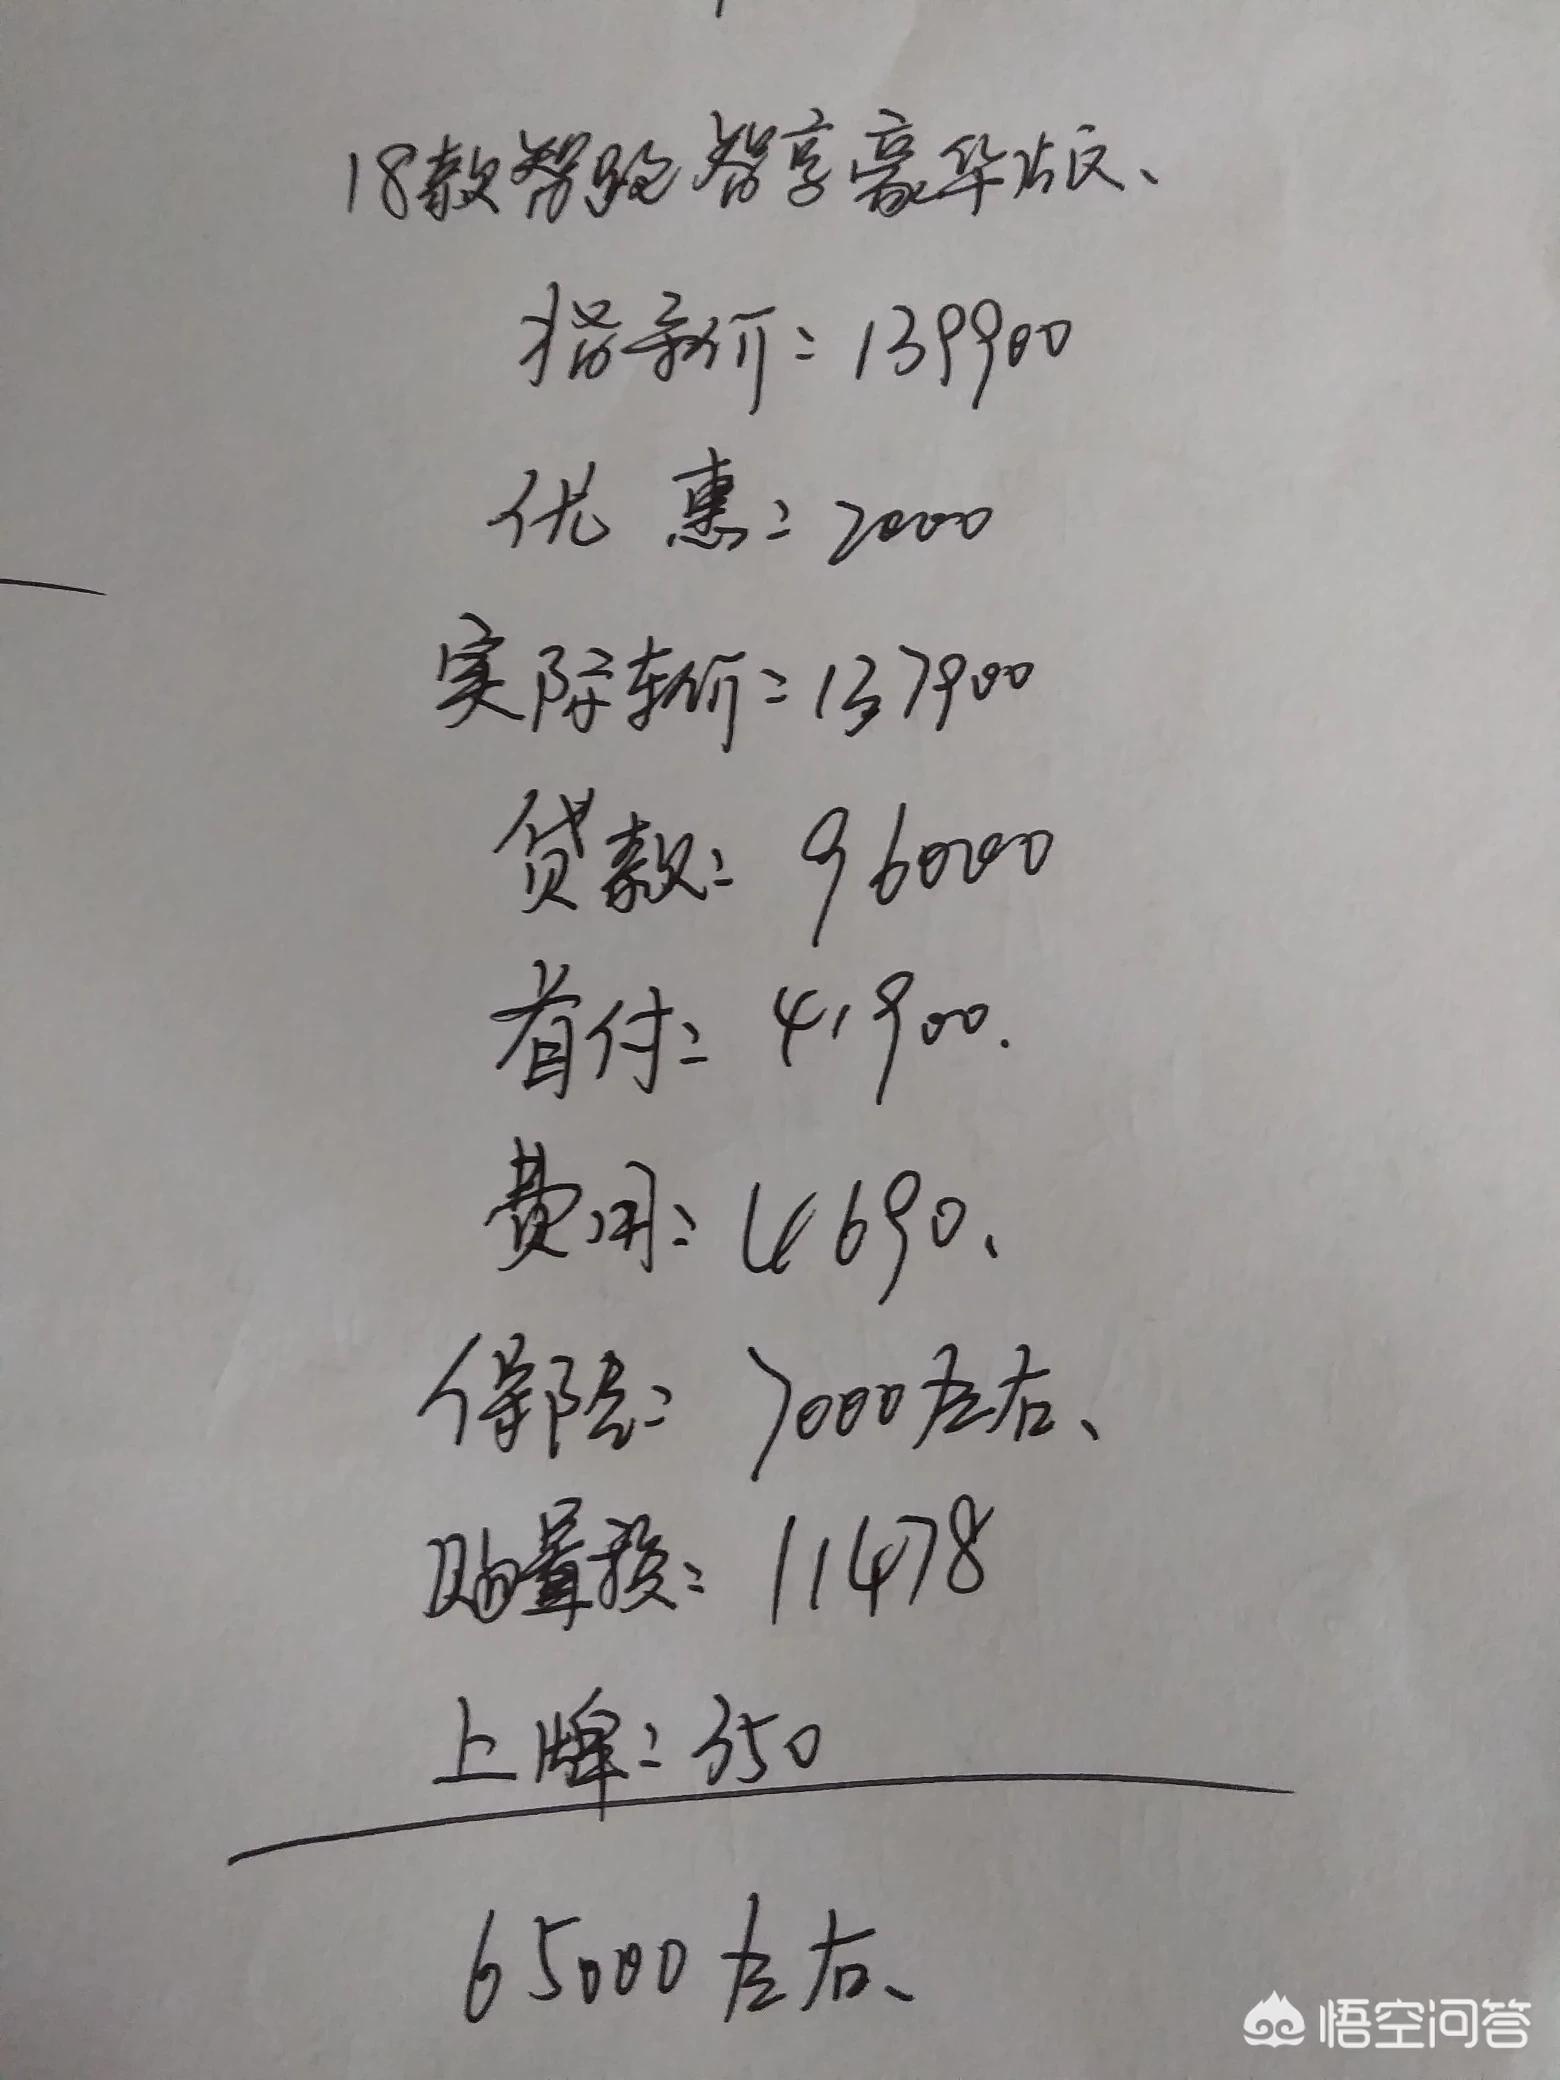 18款智跑智享豪华版、
指导价=139900
优惠=2000
实际车价=137900
贷款=96000
首付=41900.
费用=4690、
保险=7000左右、
购置税=11478
上牌=350
65000左右、
悟空问答